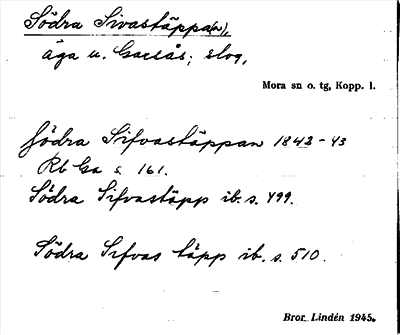 Södra Sivastäppa(n),
äga u. Garsås; skog,
Mora sn o. tg, Kopp. l.
Södra Sifvastäppan 1842-43
Rb Ga s. 161.
Södra Sifvastäpp ib. s. 499.
Södra Sifvas täpp ib. s. 510.
Bror Lindén 1945.